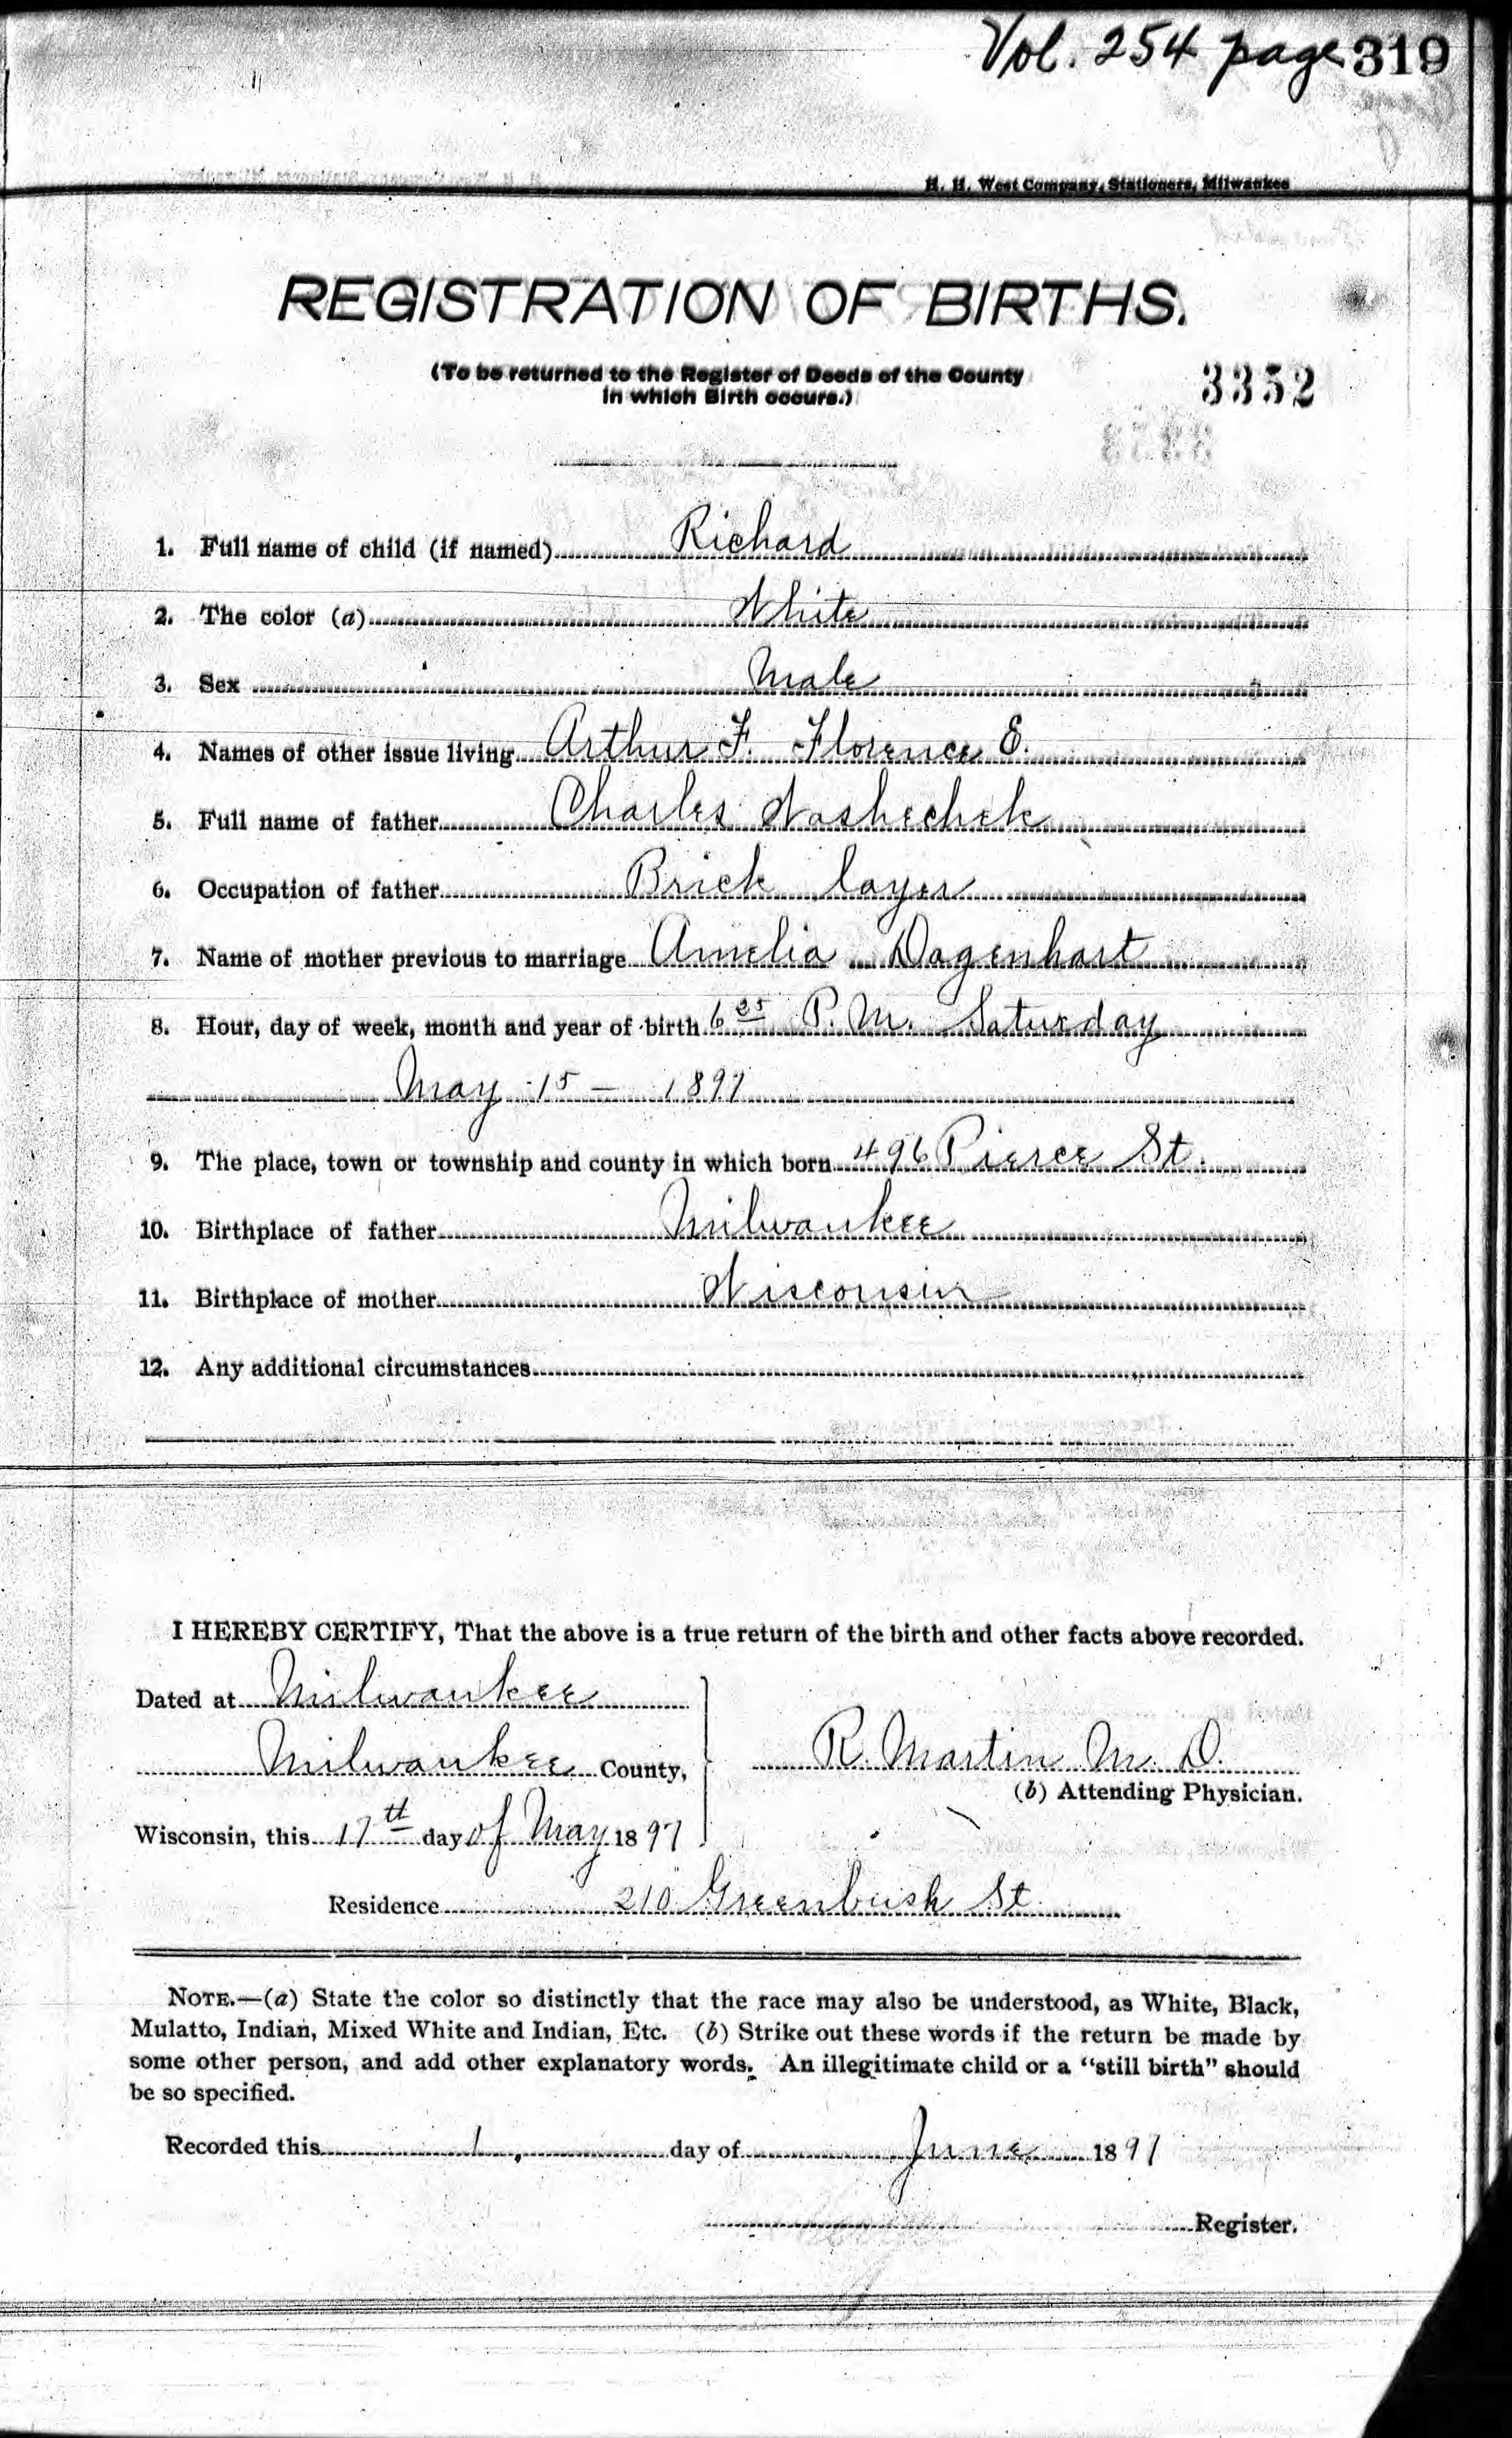 Vol. 254 page 319
H. H. West Company, Stationers, Milwaukee
REGISTRATION OF BIRTHS.
(To be returned to the Register of Deeds of the County
in which Birth occurs.)
3352
1. Full name of child (if named) Richard
2. The color (a) White
3. Sex Male
4. Names of other issue living Arthur F. Florence E.
5. Full name of father Charles Washechek
6. Occupation of father Brick layer
7. Name of mother previous to marriage Amelia Dagenhart
8. Hour, day of week, month and year of birth 6 P. M. Saturday
May 15 — 1897
9. The place, town or township and county in which born 496 Pierce St.
10. Birthplace of father Milwaukee
11. Birthplace of mother Wisconsin
12. Any additional circumstances
I HEREBY CERTIFY, That the above is a true return of the birth and other facts above recorded.
Dated at Milwaukee
Milwaukee County,
R. Martin M. D.
(b) Attending Physician.
Wisconsin, this 17th day of May 1897
Residence 210 Greenbush St.
NOTE.—(a) State the color so distinctly that the race may also be understood, as White, Black,
Mulatto, Indian, Mixed White and Indian, Etc. (b) Strike out these words if the return be made by
some other person, and add other explanatory words. An illegitimate child or a "still birth" should
be so specified.
Recorded this 1, day of June 1897
Register.